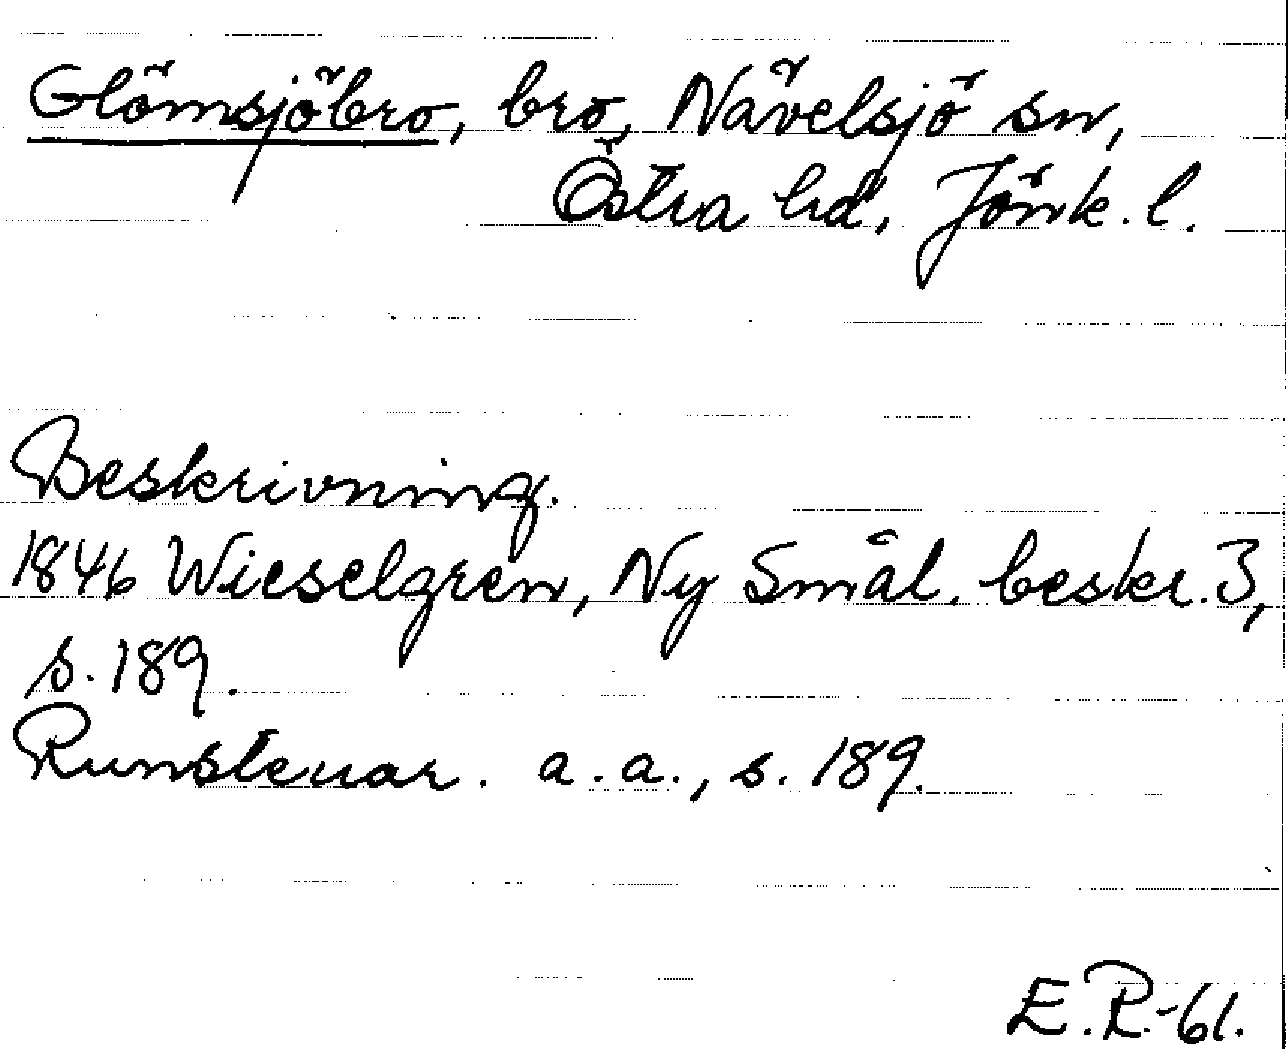 Glömsjöbro, bro, Nävelsjö sn,
Östra hd, Jönk. l.
Beskrivning.
1846 Wieselgren, Ny Smål. beskr. 3,
s. 189.
Runstenar. a.a., s. 189.
E.R.-61.